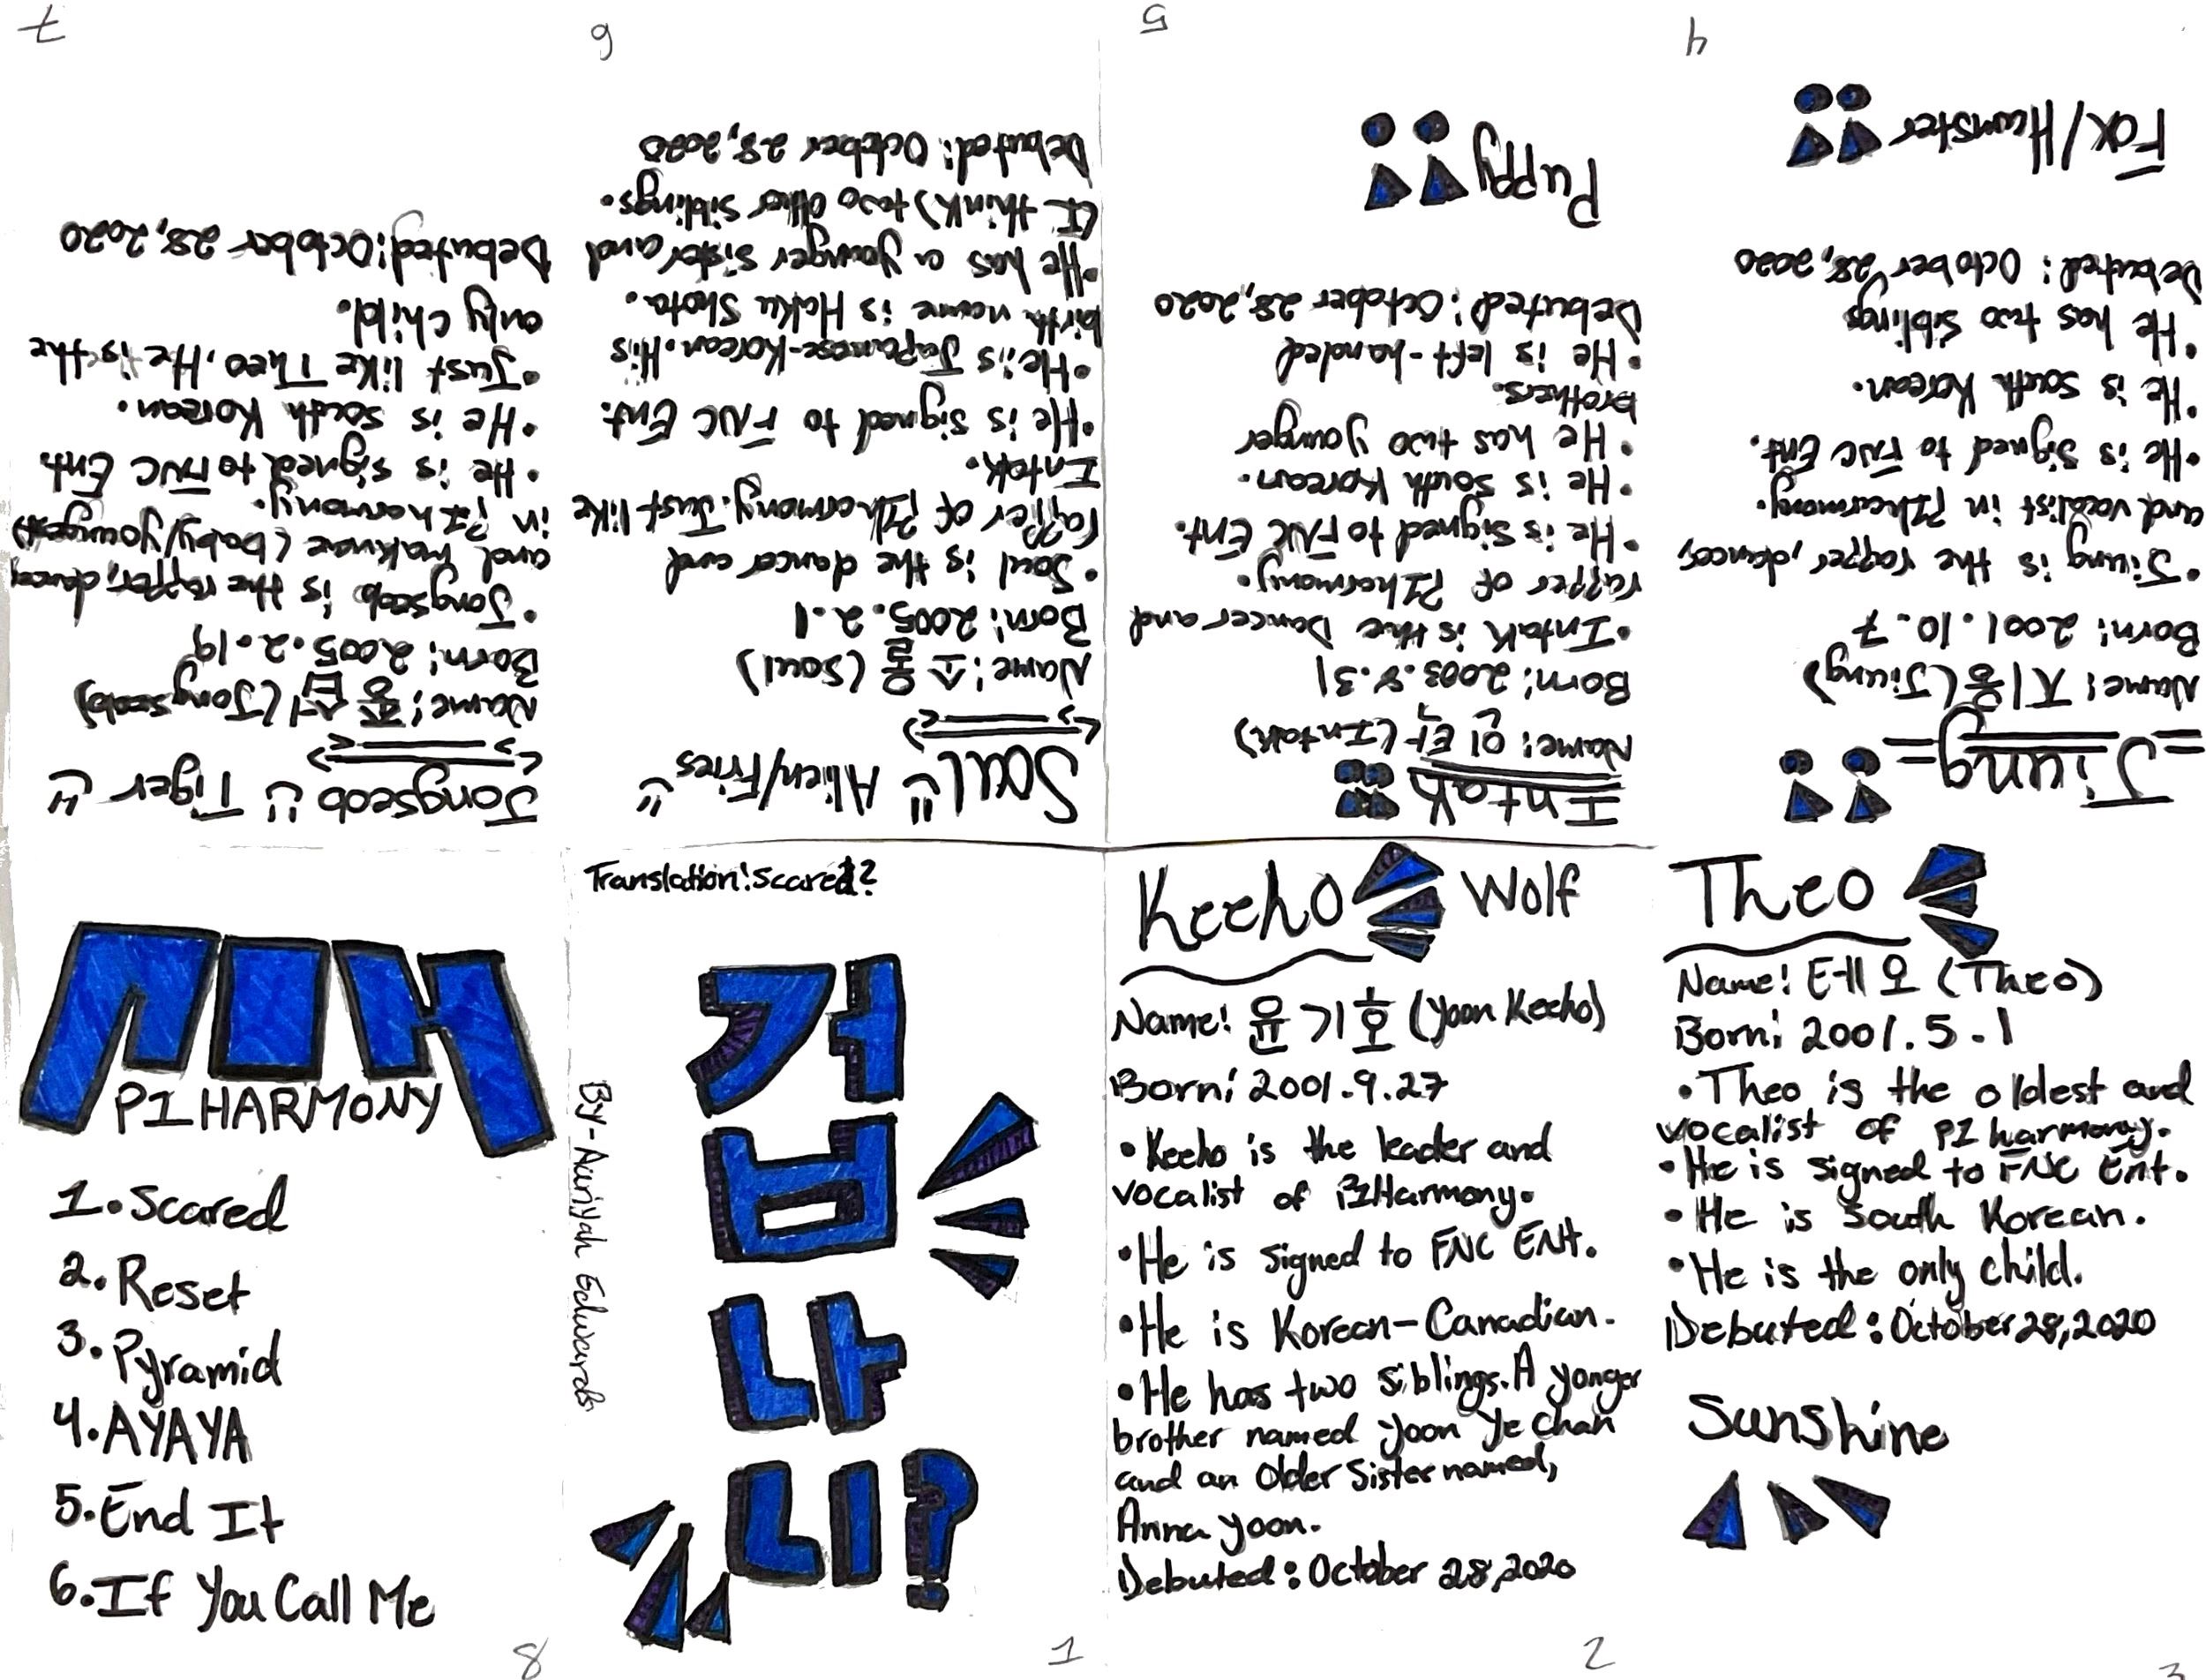 Translation: Scared?
겁
나
니?
By-Auriyah Edwards
1
Keeho Wolf
Name: 윤기호 (Yoon Keeho)
Born: 2001.9.27
• Keeho is the leader and
vocalist of P1Harmony.
• He is signed to FNC ENt.
• He is Korean-Canadian.
• He has two siblings. A yonger
brother named Yoon Ye Chan
and an Older Sister named,
Anna Yoon.
Debuted: October 28,2020
2
Theo
Name: 테오 (Theo)
Born: 2001.5.1
• Theo is the oldest and
vocalist of P1harmony.
• He is signed to FNC Ent.
• He is South Korean.
• He is the only child.
Debuted: October 28,2020
Sunshine
3
=Jiung=
Name: 지웅 (Jiung)
Born: 2001.10.7
• Jiung is the rapper, dancer,
and vocalist in P1harmony.
• He is signed to FNC Ent.
• He is south Korean.
• He has two siblings
Debuted: October 28,2020
Fox/Hamster
4
Intak
Name: 인탁 (Intak)
Born: 2003.8.31
• Intak is the Dancer and
rapper of P1harmony.
• He is signed to FNC Ent.
• He is south Korean.
• He has two younger
brothers.
• He is left-handed
Debuted: October 28,2020
Puppy
5
Soul Alien/Fries
Name: 소울 (Soul)
Born: 2005.2.1
• Soul is the dancer and
rapper of P1harmony. Just like
Intak.
• He is signed to FNC Ent.
• He is Japanese-Korean. His
birth name is Haku Shota.
• He has a younger sister and
(I think) two other siblings.
Debuted: October 28,2020
6
Jongseob Tiger
Name: 종섭 (Jongseob)
Born: 2005.2.19
• Jongseob is the rapper, dancer
and maknae (baby/youngest)
in P1harmony.
• He is signed to FNC Ent.
• He is south Korean.
• Just like Theo, He is the
only child.
Debuted: October 28,2020
7
P1HARMONY
1. Scared
2. Reset
3. Pyramid
4. AYAYA
5. End It
6. If You Call Me
8